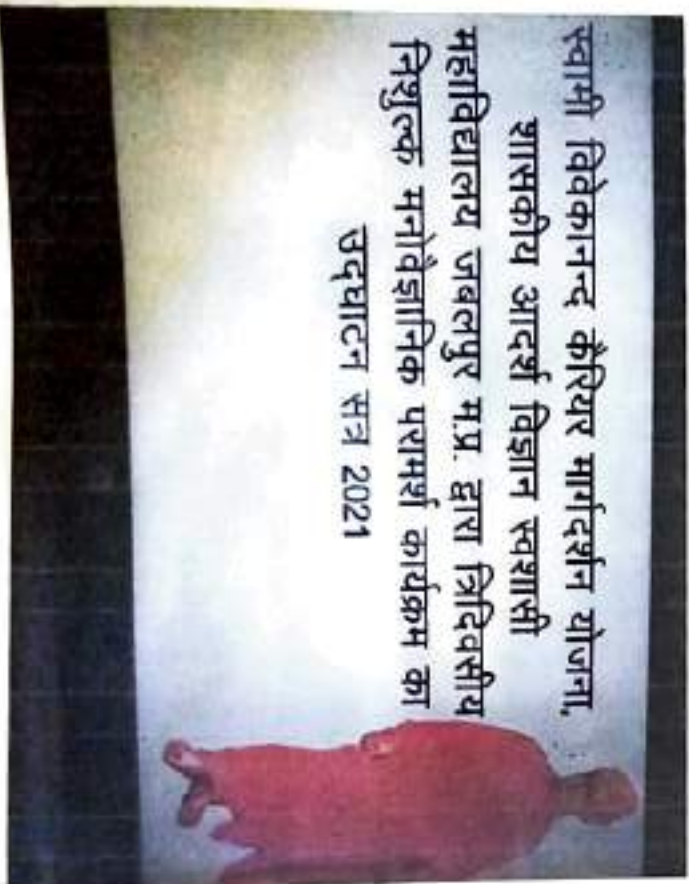 स्वामी विवेकानन्द कैरियर मार्गदर्शन योजना,
शासकीय आदर्श विज्ञान स्वशासी
महाविद्यालय जबलपुर म.प्र. द्वारा त्रिदिवसीय
निशुल्क मनोवैज्ञानिक परामर्श कार्यक्रम का
उद्घाटन सत्र 2021